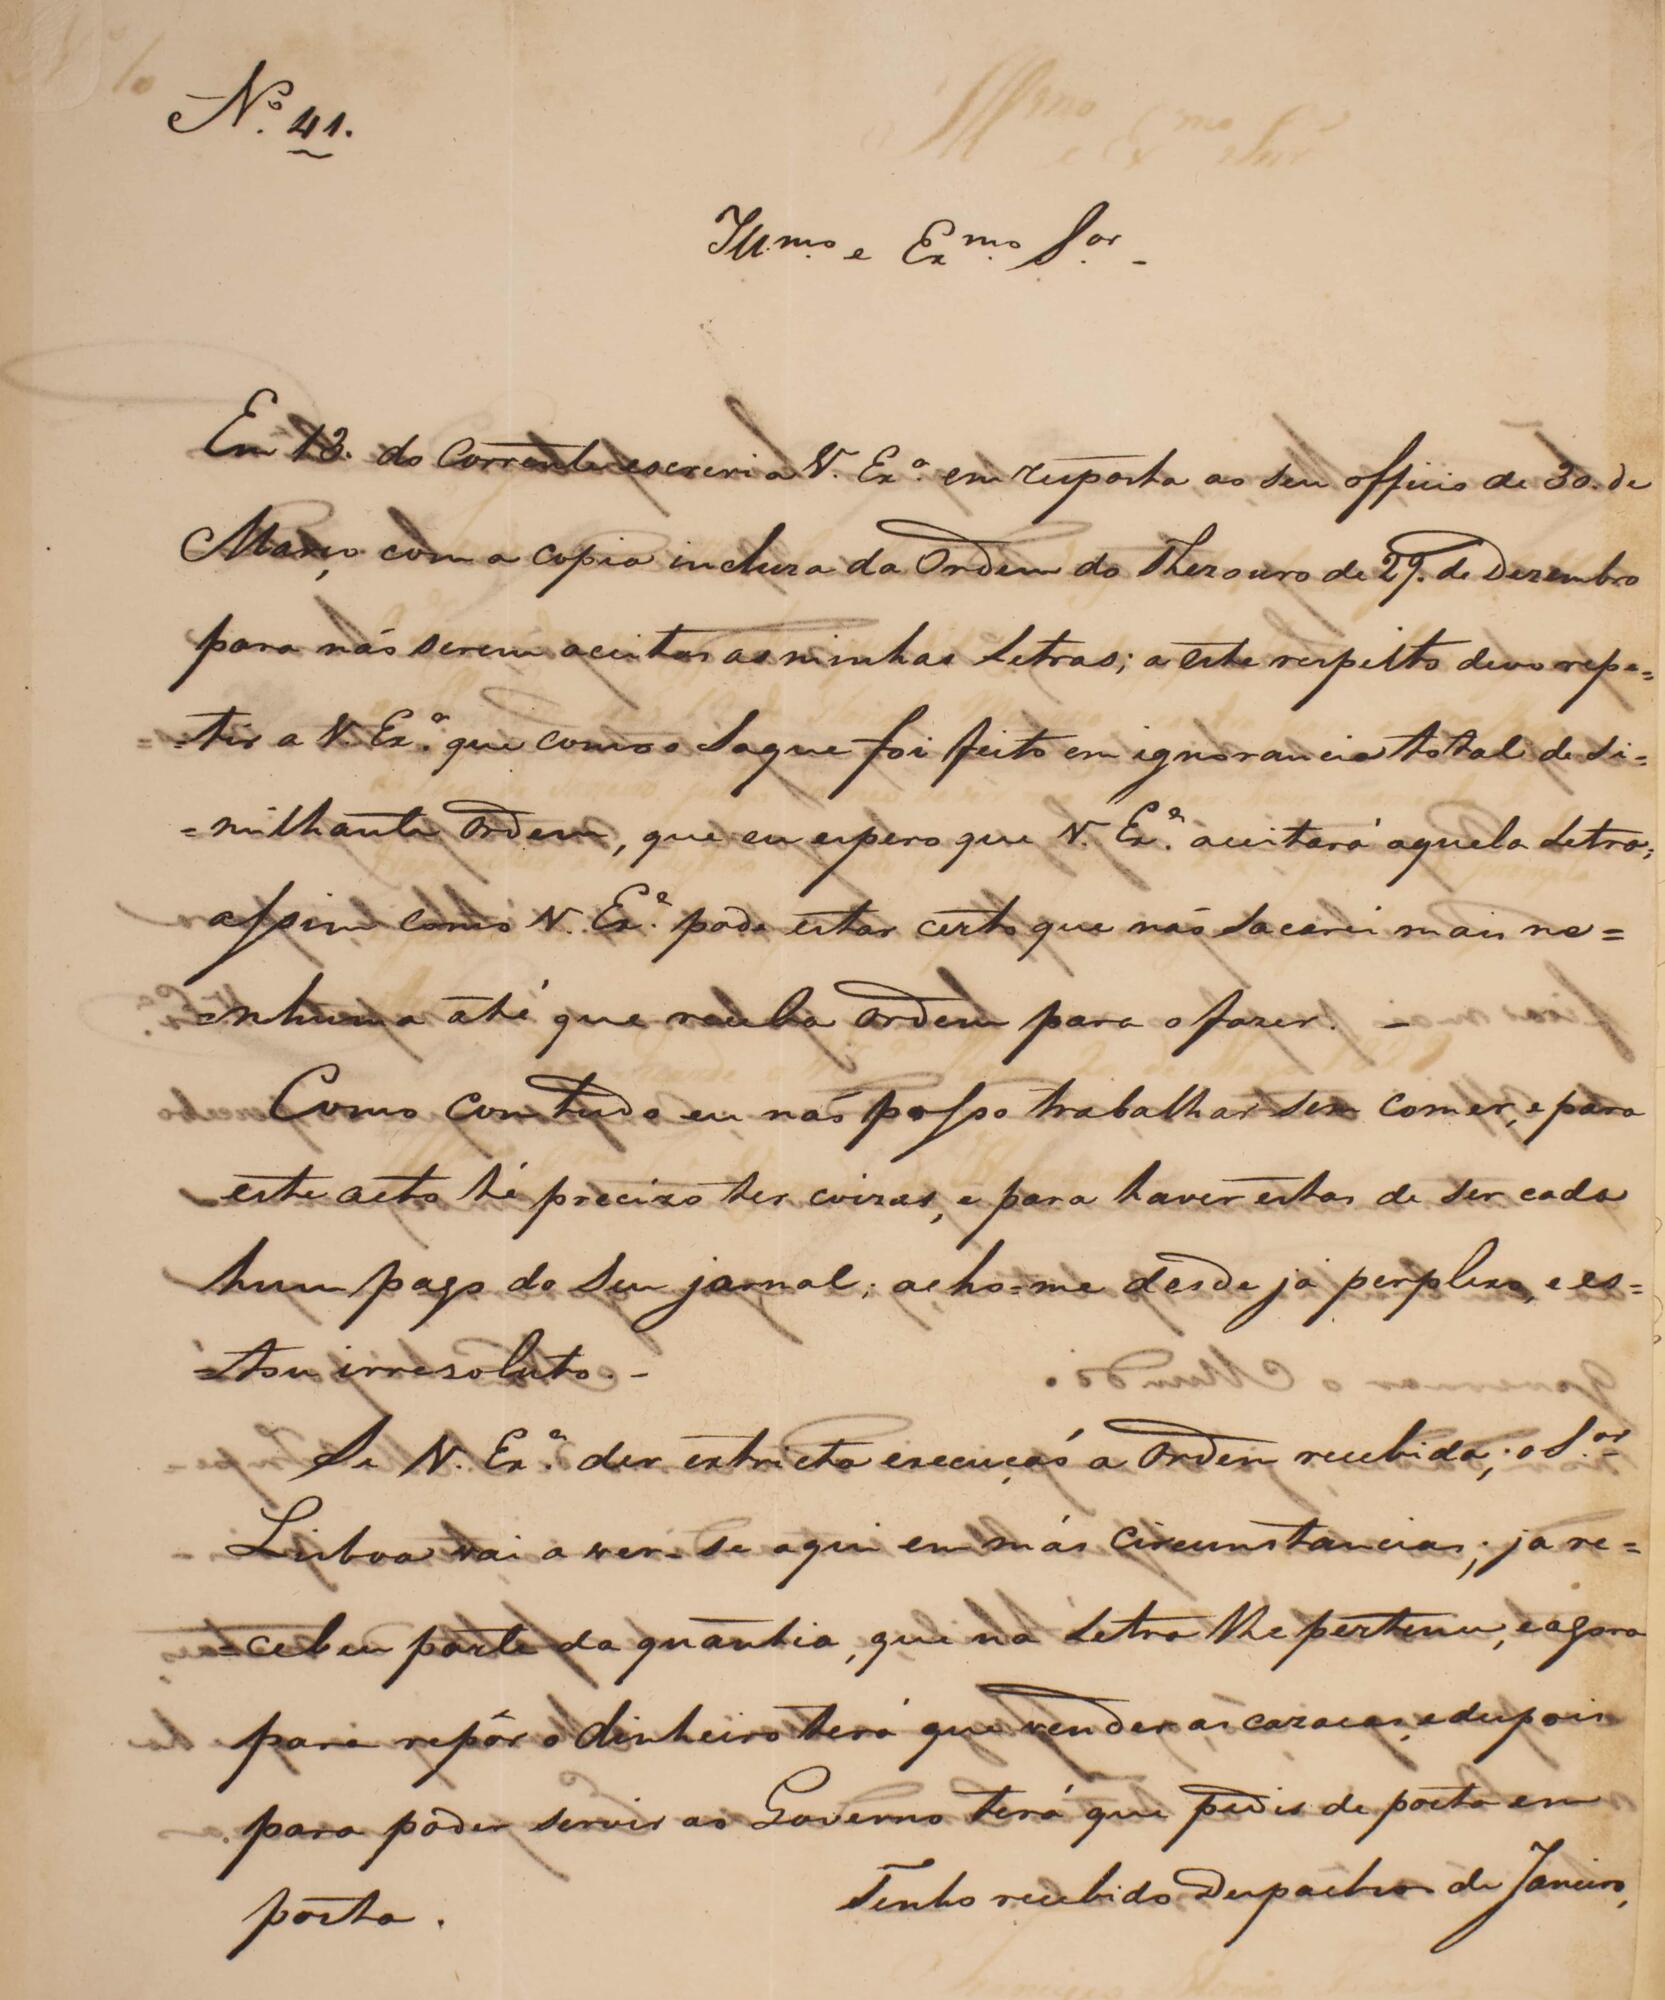 Nº 41.
Illmo. e Exmo. Sor.
Em 13. do Corrente escrevi a V. Exª. em resposta ao seu officio de 30. de
Março com a copia incluza da Ordem do Thezouro de 29. de Dezembro
para não serem aceitas as minhas Letras; a este respeito devo repe=
=tir a V. Exª. que como o Saque foi feito em ignorancia total de si=
=milhante Ordem, que eu espero que V. Exª. aceitará aquela Letra;
assim como V. Exª. pode estar certo que não Sacarei mais ne=
=nhuma até que receba Ordem para o fazer. -
Como com tudo eu não posso trabalhar sem comer, e para
este acto hé precizo ter coizas, e para haver estas de ser cada
hum pago do seu jornal; acho=me desde já perplexo, e es=
=tou irrezoluto. -
Se V. Exª. der extricta execução a Ordem recebida; o Sor.
Lisboa vai a ver-se aqui em más circumstancias; ja re=
=cebeu parte da quantia, que na Letra lhe pertence, e agora
para repôr o dinheiro terá que vender as cazacas, e depois
para poder servir ao Governo terá que pedir de porta em
porta.
Tenho recebido Despachos de Janeiro,